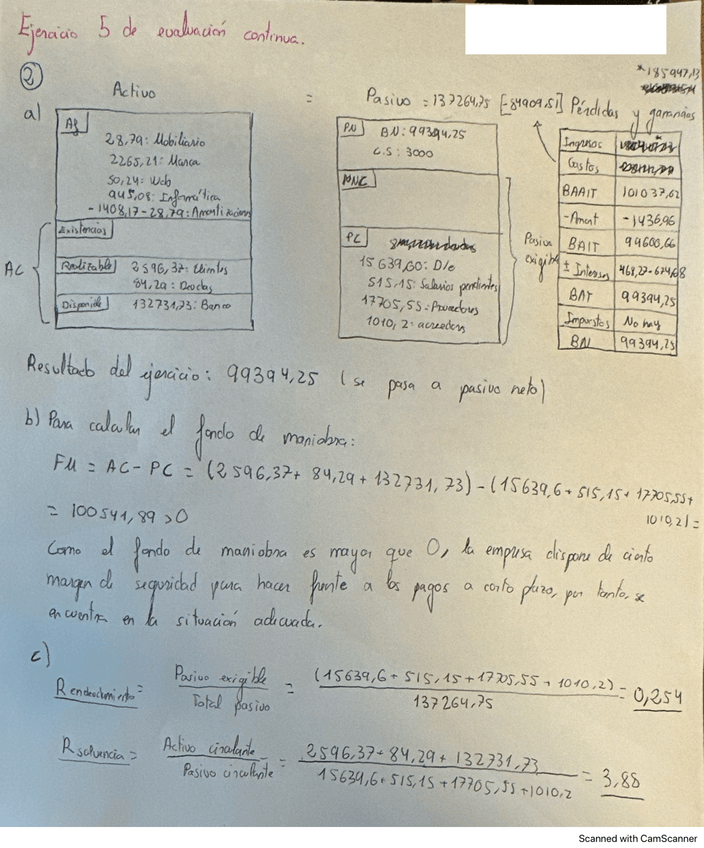 Ejercicio 5 de evaluación continua.
2
*185947,13
a) Activo = Pasivo = 137264,75 [-84909,51] Pérdidas y ganancias
Af
28,79: Mobiliario
2265,21: Marca
50,24: Web
945,08: Informática
-1408,17-28,79: Amortizaciones
AC
Existencias
Realizable 2596,37: Clientes
84,29: Deudas
Disponible 132731,73: Banco
PN BN: 99394,25
C.S: 3000
PNC
PC
15639,60: D/e
515,15: Salarios pendientes
17705,55: Proveedores
1010,2: acreedores
Pasivo exigible
Ingresos
Gastos
BAAIT 101037,62
-Amort -1436,96
BAIT 99600,66
± Intereses
BAT 99394,25
Impuestos No hay
BN 99394,25
Resultado del ejercicio: 99394,25 (se pasa a pasivo neto)
b) Para calcular el fondo de maniobra:
FM = AC - PC = (2596,37+ 84,29 + 132731,73) - (15639,6 + 515,15 + 17705,55+
1010,2) =
= 100541,89 > 0
Como el fondo de maniobra es mayor que 0, la empresa dispone de cierto
margen de seguridad para hacer frente a los pagos a corto plazo, por tanto, se
encuentra en la situación adecuada.
c)
R endeudamiento = Pasivo exigible / Total pasivo = (15639,6 + 515,15 + 17705,55 + 1010,2) / 137264,75 = 0,254
R solvencia = Activo circulante / Pasivo circulante = 2596,37 + 84,29 + 132731,73 / 15639,6 + 515,15 + 17705,55 + 1010,2 = 3,88
Scanned with CamScanner